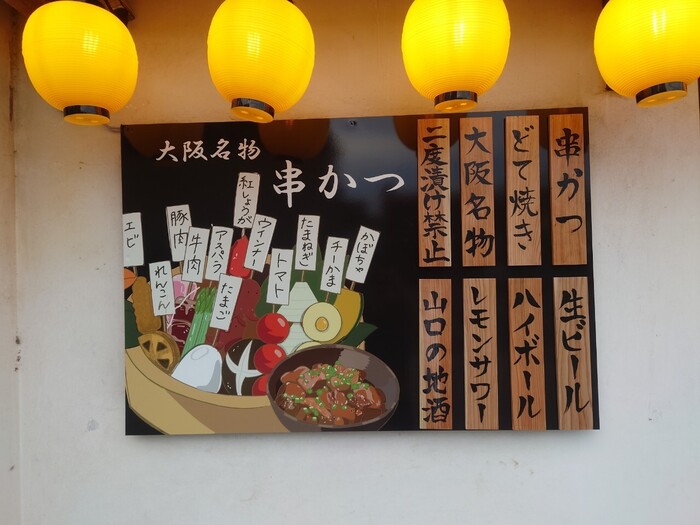 大阪名物
串かつ
エビ
れんこん
豚肉
牛肉
アスパラ
たまご
紅しょうが
ウインナー
トマト
たまねぎ
チーかま
かぼちゃ
串かつ
どて焼き
大阪名物
二度漬け禁止
生ビール
ハイボール
レモンサワー
山口の地酒